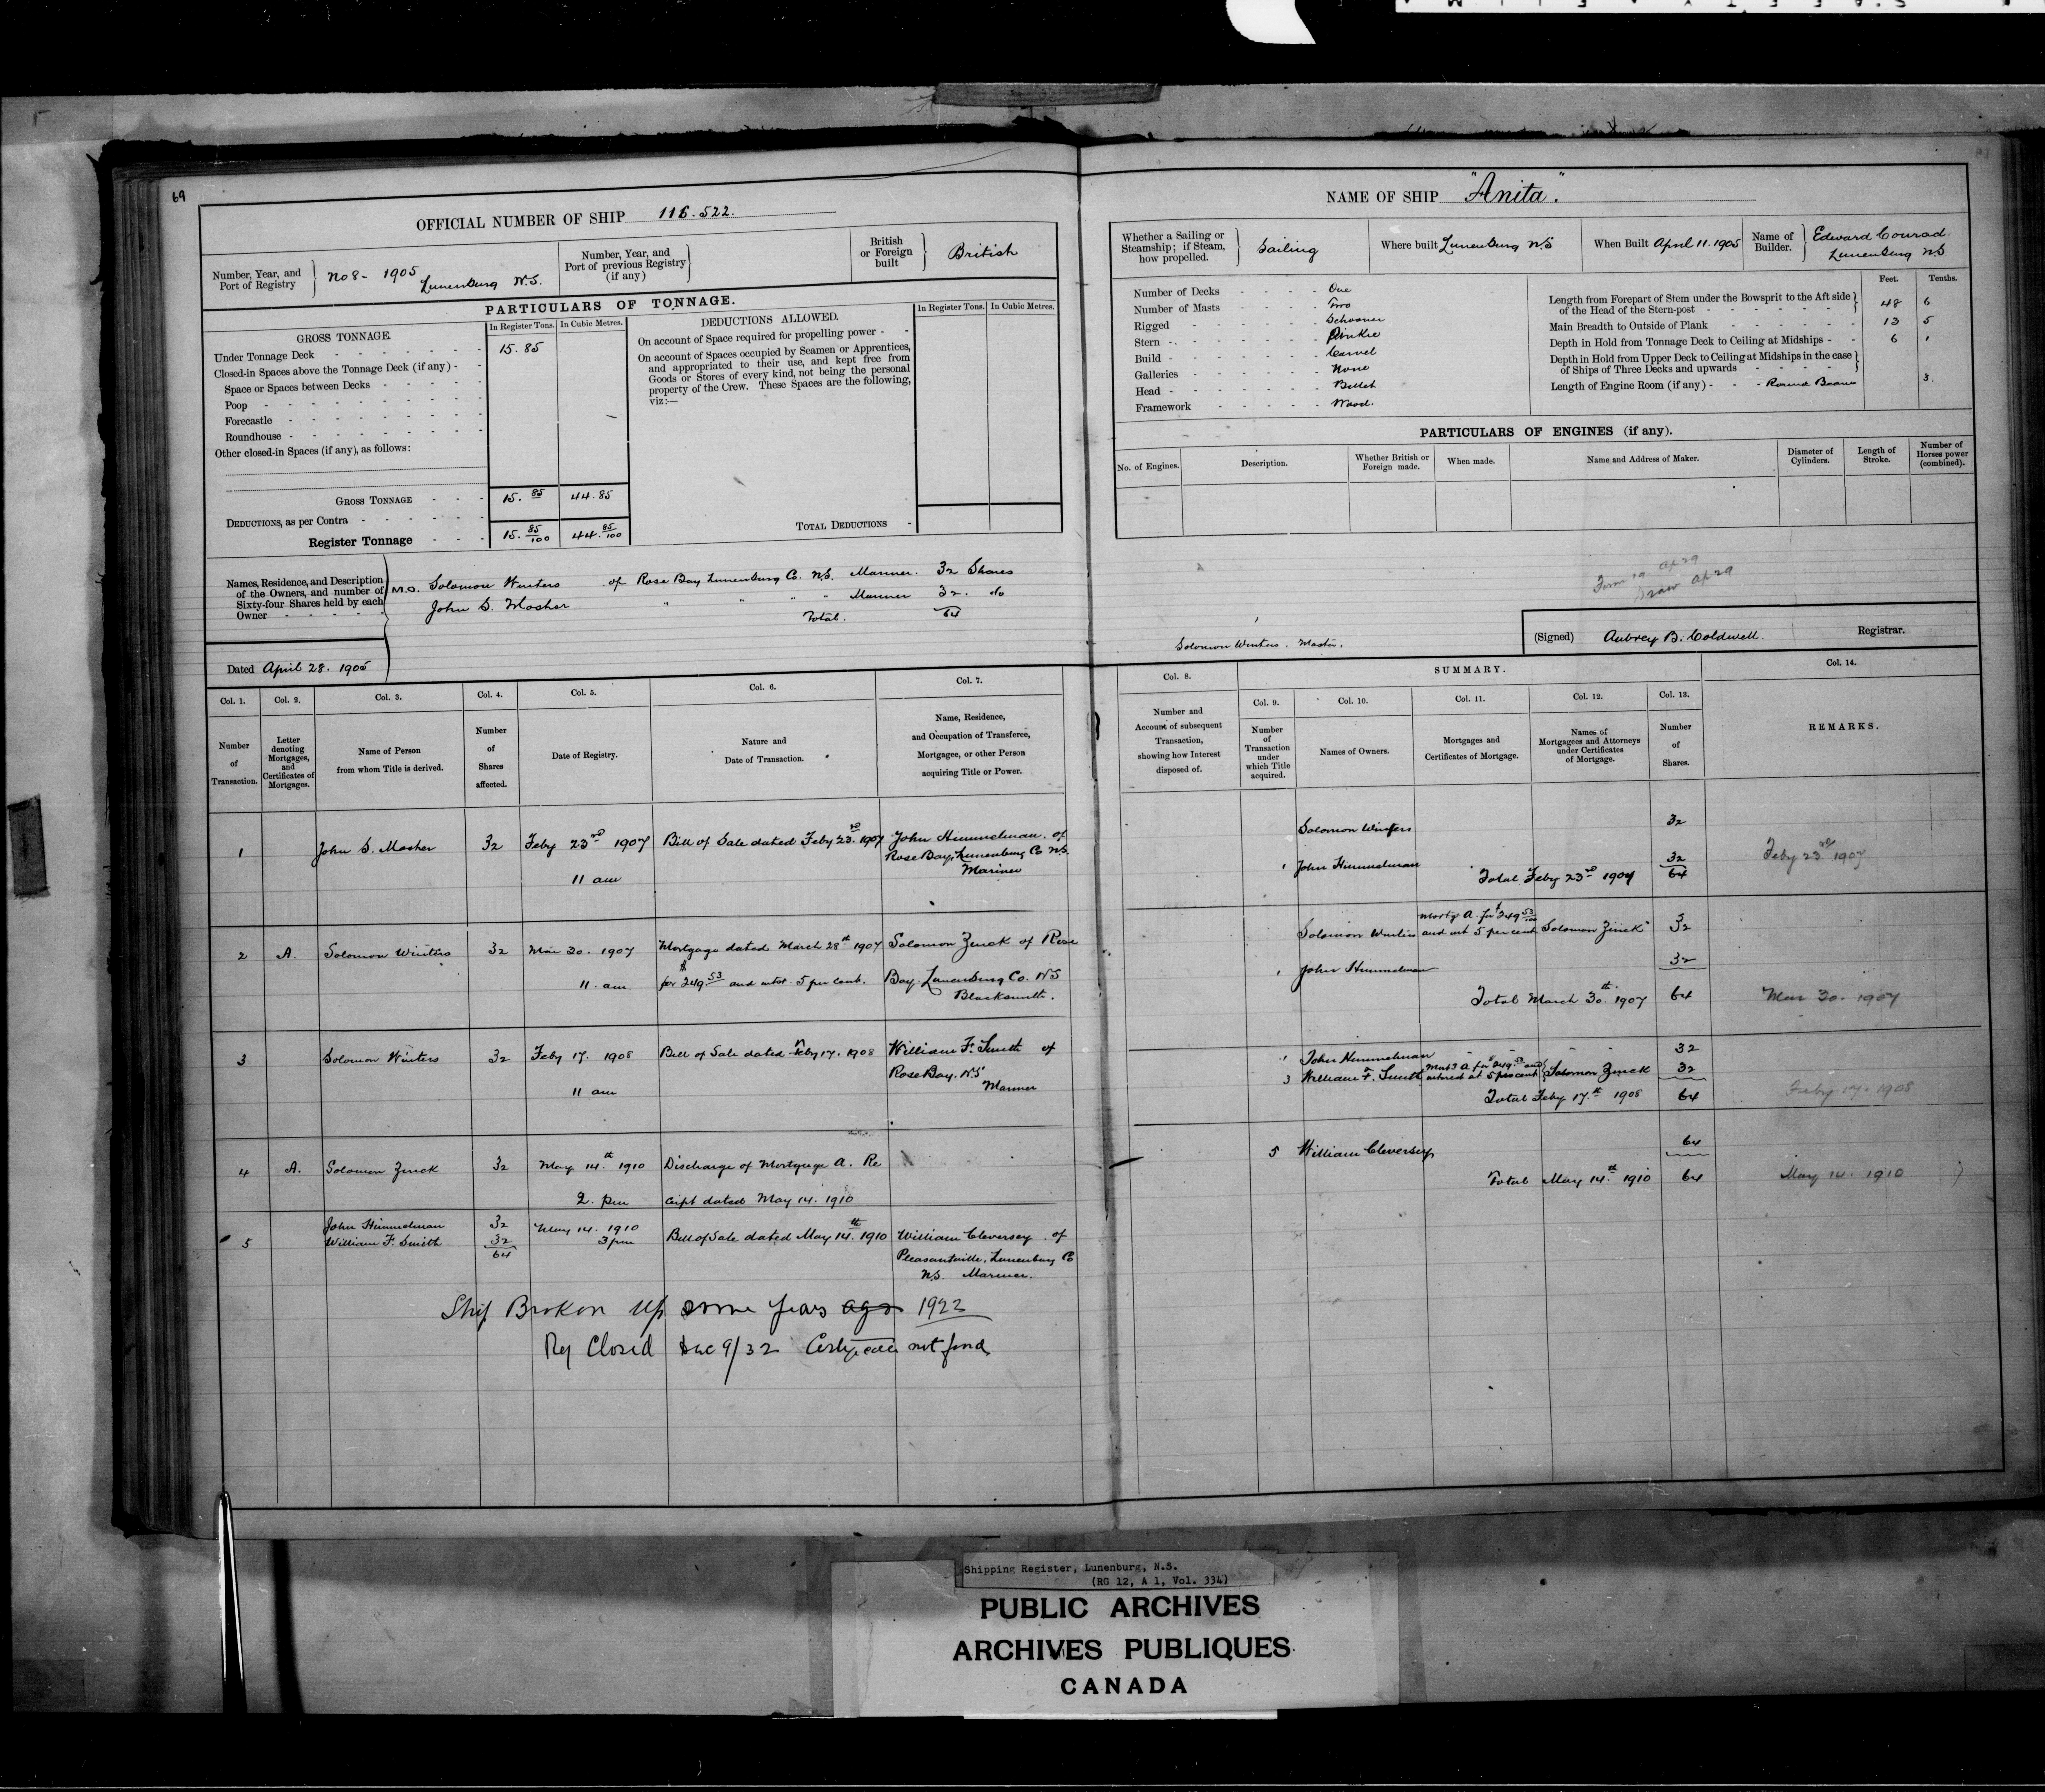 69
OFFICIAL NUMBER OF SHIP 116.522.
Number, Year, and Port of Registry
No 8 - 1905 Lunenburg N.S.
Number, Year, and Port of previous Registry (if any)
British or Foreign built
British
PARTICULARS OF TONNAGE.
GROSS TONNAGE.
In Register Tons. In Cubic Metres.
Under Tonnage Deck 15.85
Closed-in Spaces above the Tonnage Deck (if any)
Space or Spaces between Decks
Poop
Forecastle
Roundhouse
Other closed-in Spaces (if any), as follows:
GROSS TONNAGE 15.85 44.85
DEDUCTIONS, as per Contra
Register Tonnage 15. 85/100 44. 85/100
DEDUCTIONS ALLOWED.
In Register Tons. In Cubic Metres.
On account of Space required for propelling power
On account of Spaces occupied by Seamen or Apprentices,
and appropriated to their use, and kept free from
Goods or Stores of every kind, not being the personal
property of the Crew. These Spaces are the following,
viz:—
TOTAL DEDUCTIONS
Names, Residence, and Description
of the Owners, and number of
Sixty-four Shares held by each
Owner
M.O. Solomon Winters of Rose Bay Lunenburg Co. N.S. Mariner. 32 Shares
John S. Mosher " " " " Mariner 32. do
Total. 64
Dated April 28. 1905
NAME OF SHIP "Anita".
Whether a Sailing or Steamship; if Steam, how propelled.
Sailing
Where built Lunenburg NS
When Built April 11. 1905
Name of Builder.
Edward Conrad.
Lunenburg N.S
Number of Decks One
Number of Masts Two
Rigged Schooner
Stern Pinkie
Build Carvel
Galleries None
Head Billet
Framework Wood.
Feet. Tenths.
Length from Forepart of Stem under the Bowsprit to the Aft side
of the Head of the Stern-post 48 6
Main Breadth to Outside of Plank 13 5
Depth in Hold from Tonnage Deck to Ceiling at Midships 6 1
Depth in Hold from Upper Deck to Ceiling at Midships in the case
of Ships of Three Decks and upwards
Length of Engine Room (if any) Round Beam 3.
PARTICULARS OF ENGINES (if any).
No. of Engines. Description. Whether British or Foreign made. When made. Name and Address of Maker. Diameter of Cylinders. Length of Stroke. Number of Horses power (combined).
Form 19 Ap 29
Draw Ap 29
Solomon Winters. Master.
(Signed) Aubrey B. Coldwell. Registrar.
Col. 1. Col. 2. Col. 3. Col. 4. Col. 5. Col. 6. Col. 7.
Number of Transaction.
Letter denoting Mortgages, and Certificates of Mortgages.
Name of Person from whom Title is derived.
Number of Shares affected.
Date of Registry.
Nature and Date of Transaction.
Name, Residence, and Occupation of Transferee, Mortgagee, or other Person acquiring Title or Power.
1 John S. Mosher 32 Feby 23rd 1907 Bill of Sale dated Feby 23rd. 1907 John Himmelman. of
Rose Bay, Lunenburg Co N.S.
11 am Mariner
2 A. Solomon Winters 32 Mar 30. 1907 Mortgage dated March 28th 1907 Solomon Zinck of Rose
11. am for $249.53 and intst. 5 per cent. Bay. Lunenburg Co. NS
Blacksmith.
3 Solomon Winters 32 Feby 17. 1908 Bill of Sale dated Feby 17. 1908 William F. Smith of
Rose Bay. N.S
11 am Mariner
4 A. Solomon Zinck 32 May 14th. 1910 Discharge of Mortgage A. Re
2. pm ceipt dated May 14. 1910
5 John Himmelman 32 May 14. 1910 Bill of Sale dated May 14th. 1910 William Cleversey of
William F. Smith 32 3 pm Pleasantville. Lunenburg Co
64 N.S. Mariner.
Ship Broken Up some years ago 1922
Reg Closed Dec 9/32 Certificate not found
SUMMARY.
Col. 8. Col. 9. Col. 10. Col. 11. Col. 12. Col. 13. Col. 14.
Number and Account of subsequent Transaction, showing how Interest disposed of.
Number of Transaction under which Title acquired.
Names of Owners.
Mortgages and Certificates of Mortgage.
Names of Mortgagees and Attorneys under Certificates of Mortgage.
Number of Shares.
REMARKS.
Solomon Winters 32
1 John Himmelman 32
Total Feby 23rd 1907 64 Feby 23rd 1907
Solomon Winters Mortg A. for $249 53/100 and int 5 per cent Solomon Zinck 32
1 John Himmelman 32
Total March 30th. 1907 64 Mar 30. 1907
1 John Himmelman 32
3 William F. Smith Mortg A for $249.53 and interest at 5 per cent Solomon Zinck 32
Total Feby 17th 1908 64 Feby 17. 1908
5 William Cleversey 64
Total May 14th. 1910 64 May 14. 1910
Shipping Register, Lunenburg, N.S.
(RG 12, A 1, Vol. 334)
PUBLIC ARCHIVES
ARCHIVES PUBLIQUES
CANADA